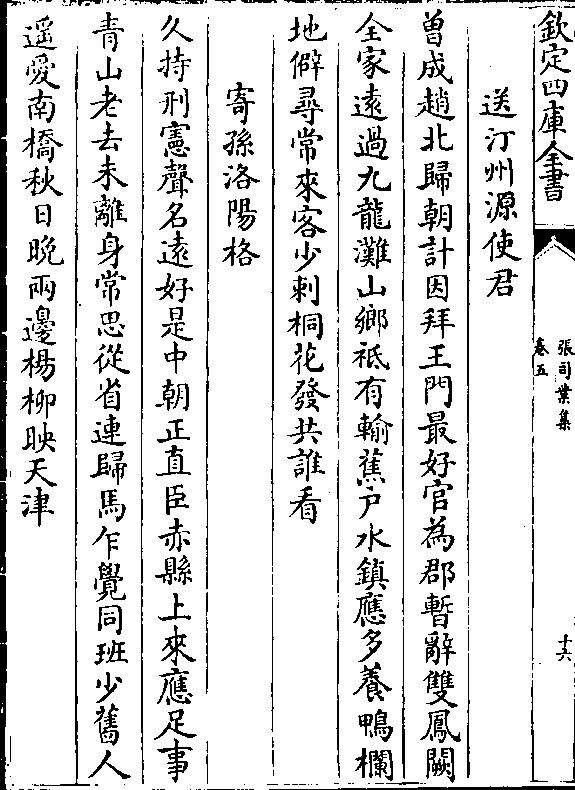 欽定四庫全書
張司業集
卷五
十六
送汀州源使君
曽成趙北歸朝計因拜王門最好官為郡暫辭雙鳳闕
全家遠過九龍灘山鄉祗有輸蕉户水鎮應多養鴨欄
地僻尋常來客少刺桐花發共誰看
寄孫洛陽格
久持刑憲聲名遠好是中朝正直臣赤縣上來應足事
青山老去未離身常思從省連歸馬乍覺同班少舊人
遥愛南橋秋日晚兩邊楊柳映天津